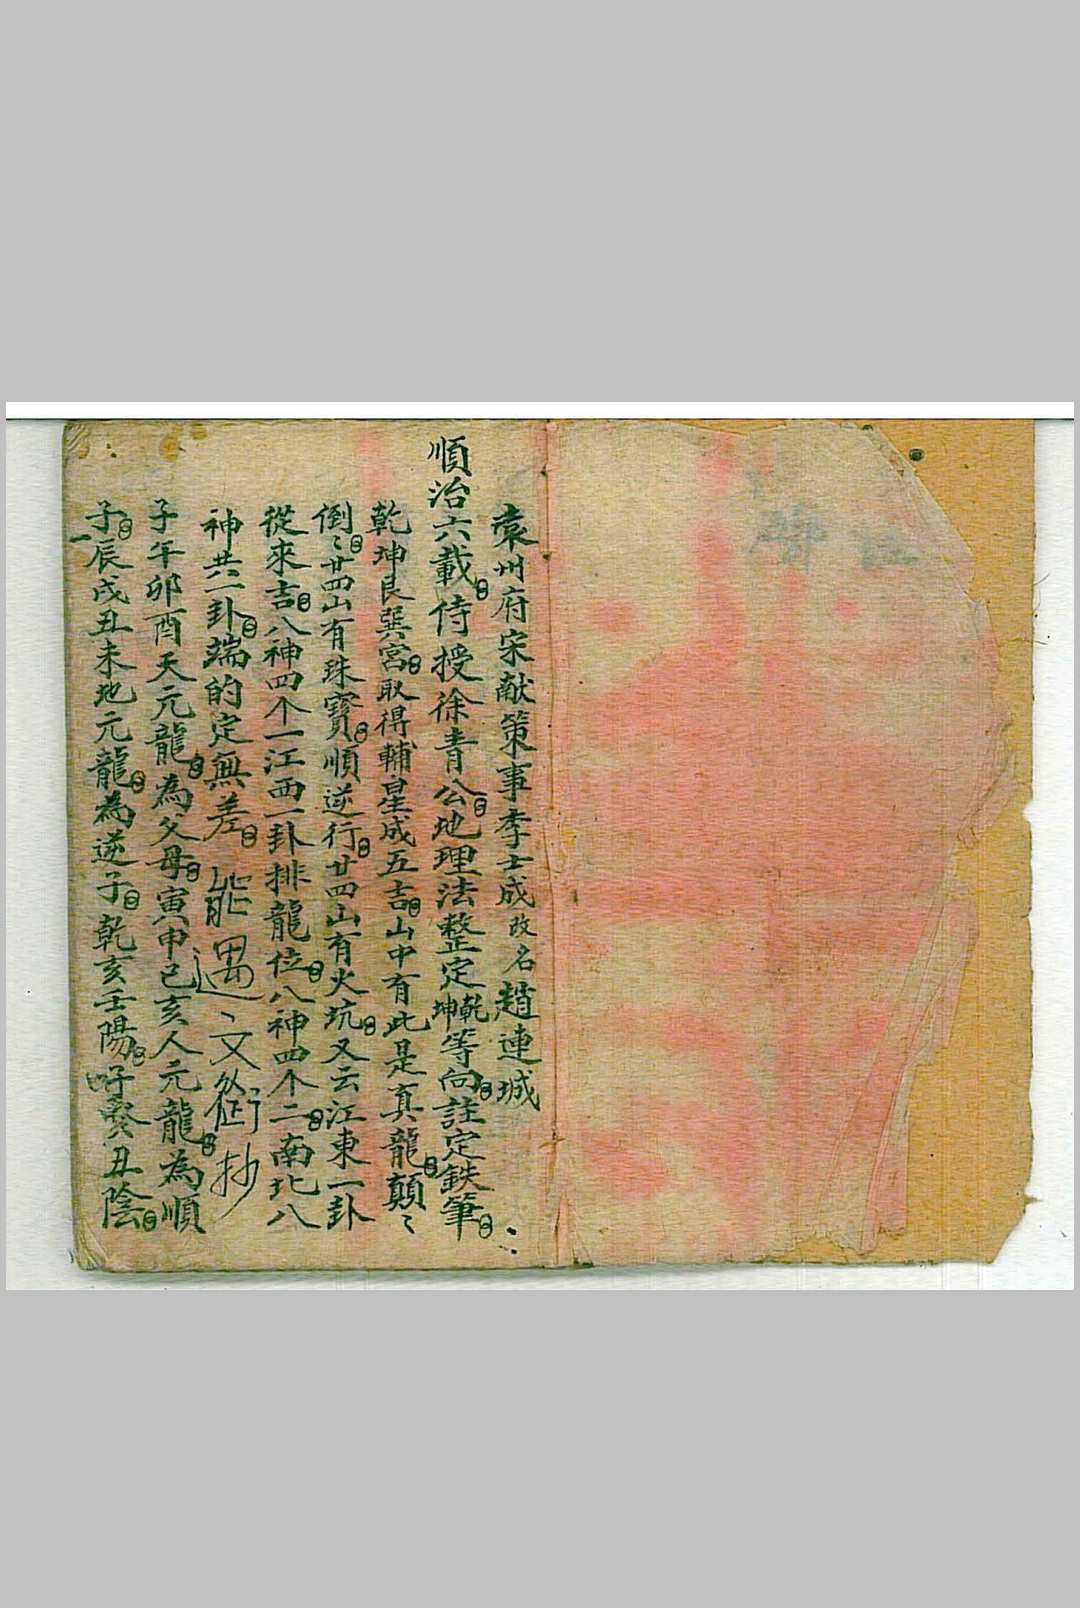 袁州府宋献策事李士成改名趙連城
順治六載侍授徐青公地理法整定乾坤等向註定鉄筆
乾坤艮巽宮取得輔星成五吉山中有此是真龍顛〻
倒〻廿四山有珠寶順逆行廿四山有火坑又云江東一卦
從來吉八神四个一江西一卦排龍位八神四个二南北八
神共一卦端的定無差 能遇〻文衙抄
子午卯酉天元龍為父母寅申巳亥人元龍為順
子辰戌丑未地元龍為逆子乾亥壬陽子癸丑陰